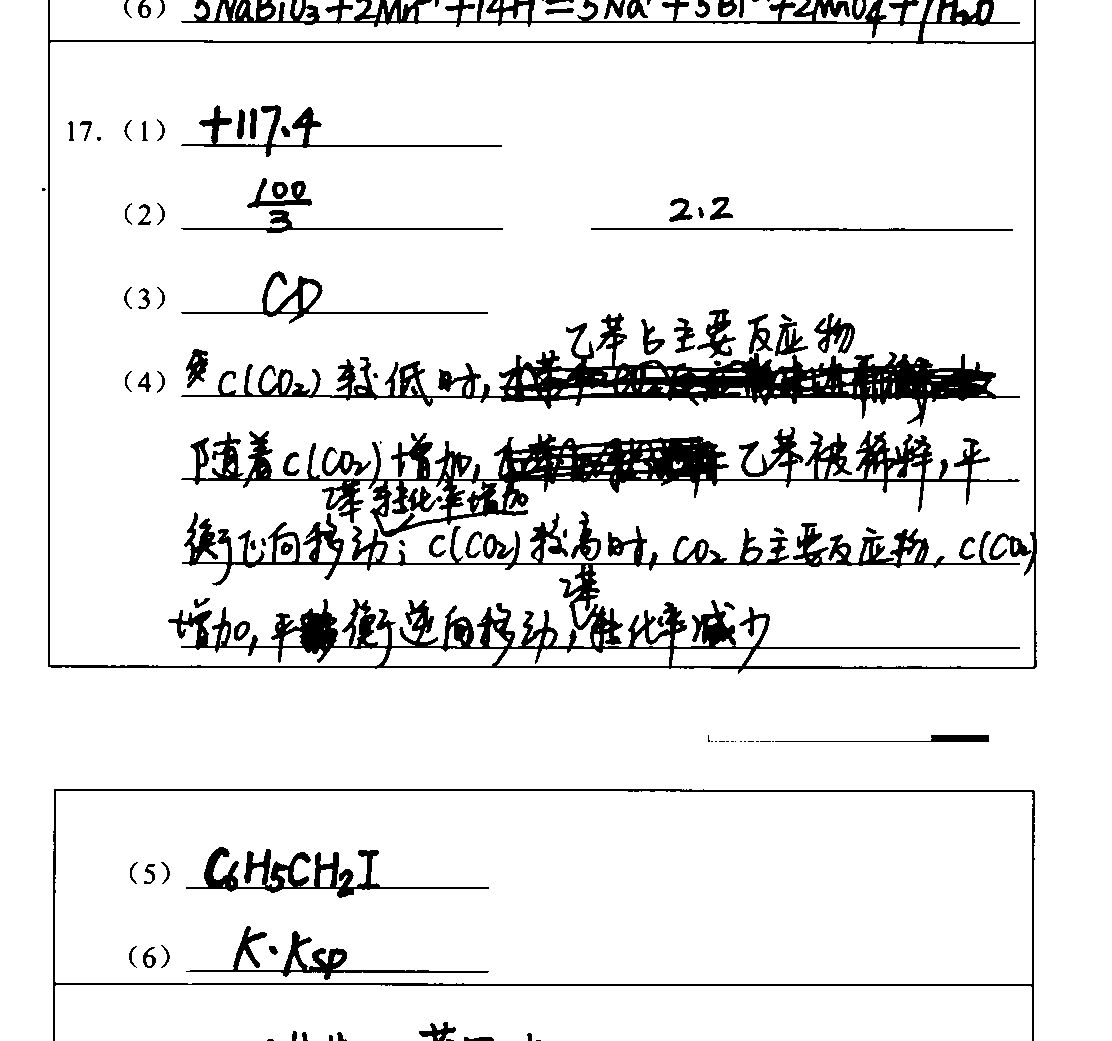 (6) 5NaBiO₃+2Mn²⁺+14H⁺=5Na⁺+5Bi³⁺+2MnO₄⁻+7H₂O
17. (1) +117.4
(2) 100/3 2.2
(3) CD
乙苯占主要反应物
(4) c(CO₂) 较低时,
随着c(CO₂)增加, 乙苯被稀释,平
乙苯转化率增加
衡正向移动; c(CO₂)较高时, CO₂占主要反应物, c(CO₂)
乙苯
增加,平衡逆向移动,转化率减少
(5) C₆H₅CH₂I
(6) K·Ksp